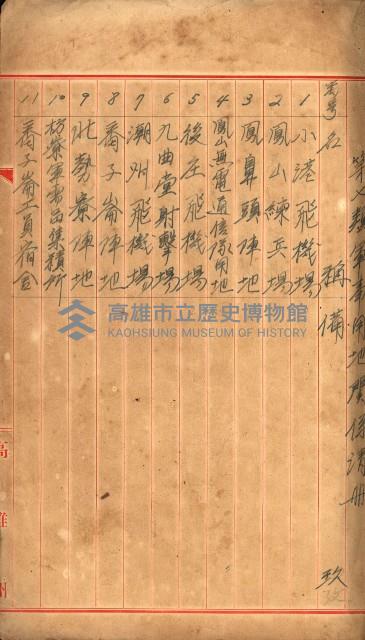 第七類軍事用地關係清冊
番号 名 稱 備 玫
1 小港飛機場
2 鳳山練兵場
3 鳳鼻頭陣地
4 鳳山無電通信隊用地
5 後庄飛機場
6 九曲堂射擊場
7 潮州飛機場
8 番子崙陣地
9 北勢寮陣地
10 枋寮軍需品集積所
11 番子崙工員宿舍
高雄州
高雄市立歷史博物館
KAOHSIUNG MUSEUM OF HISTORY